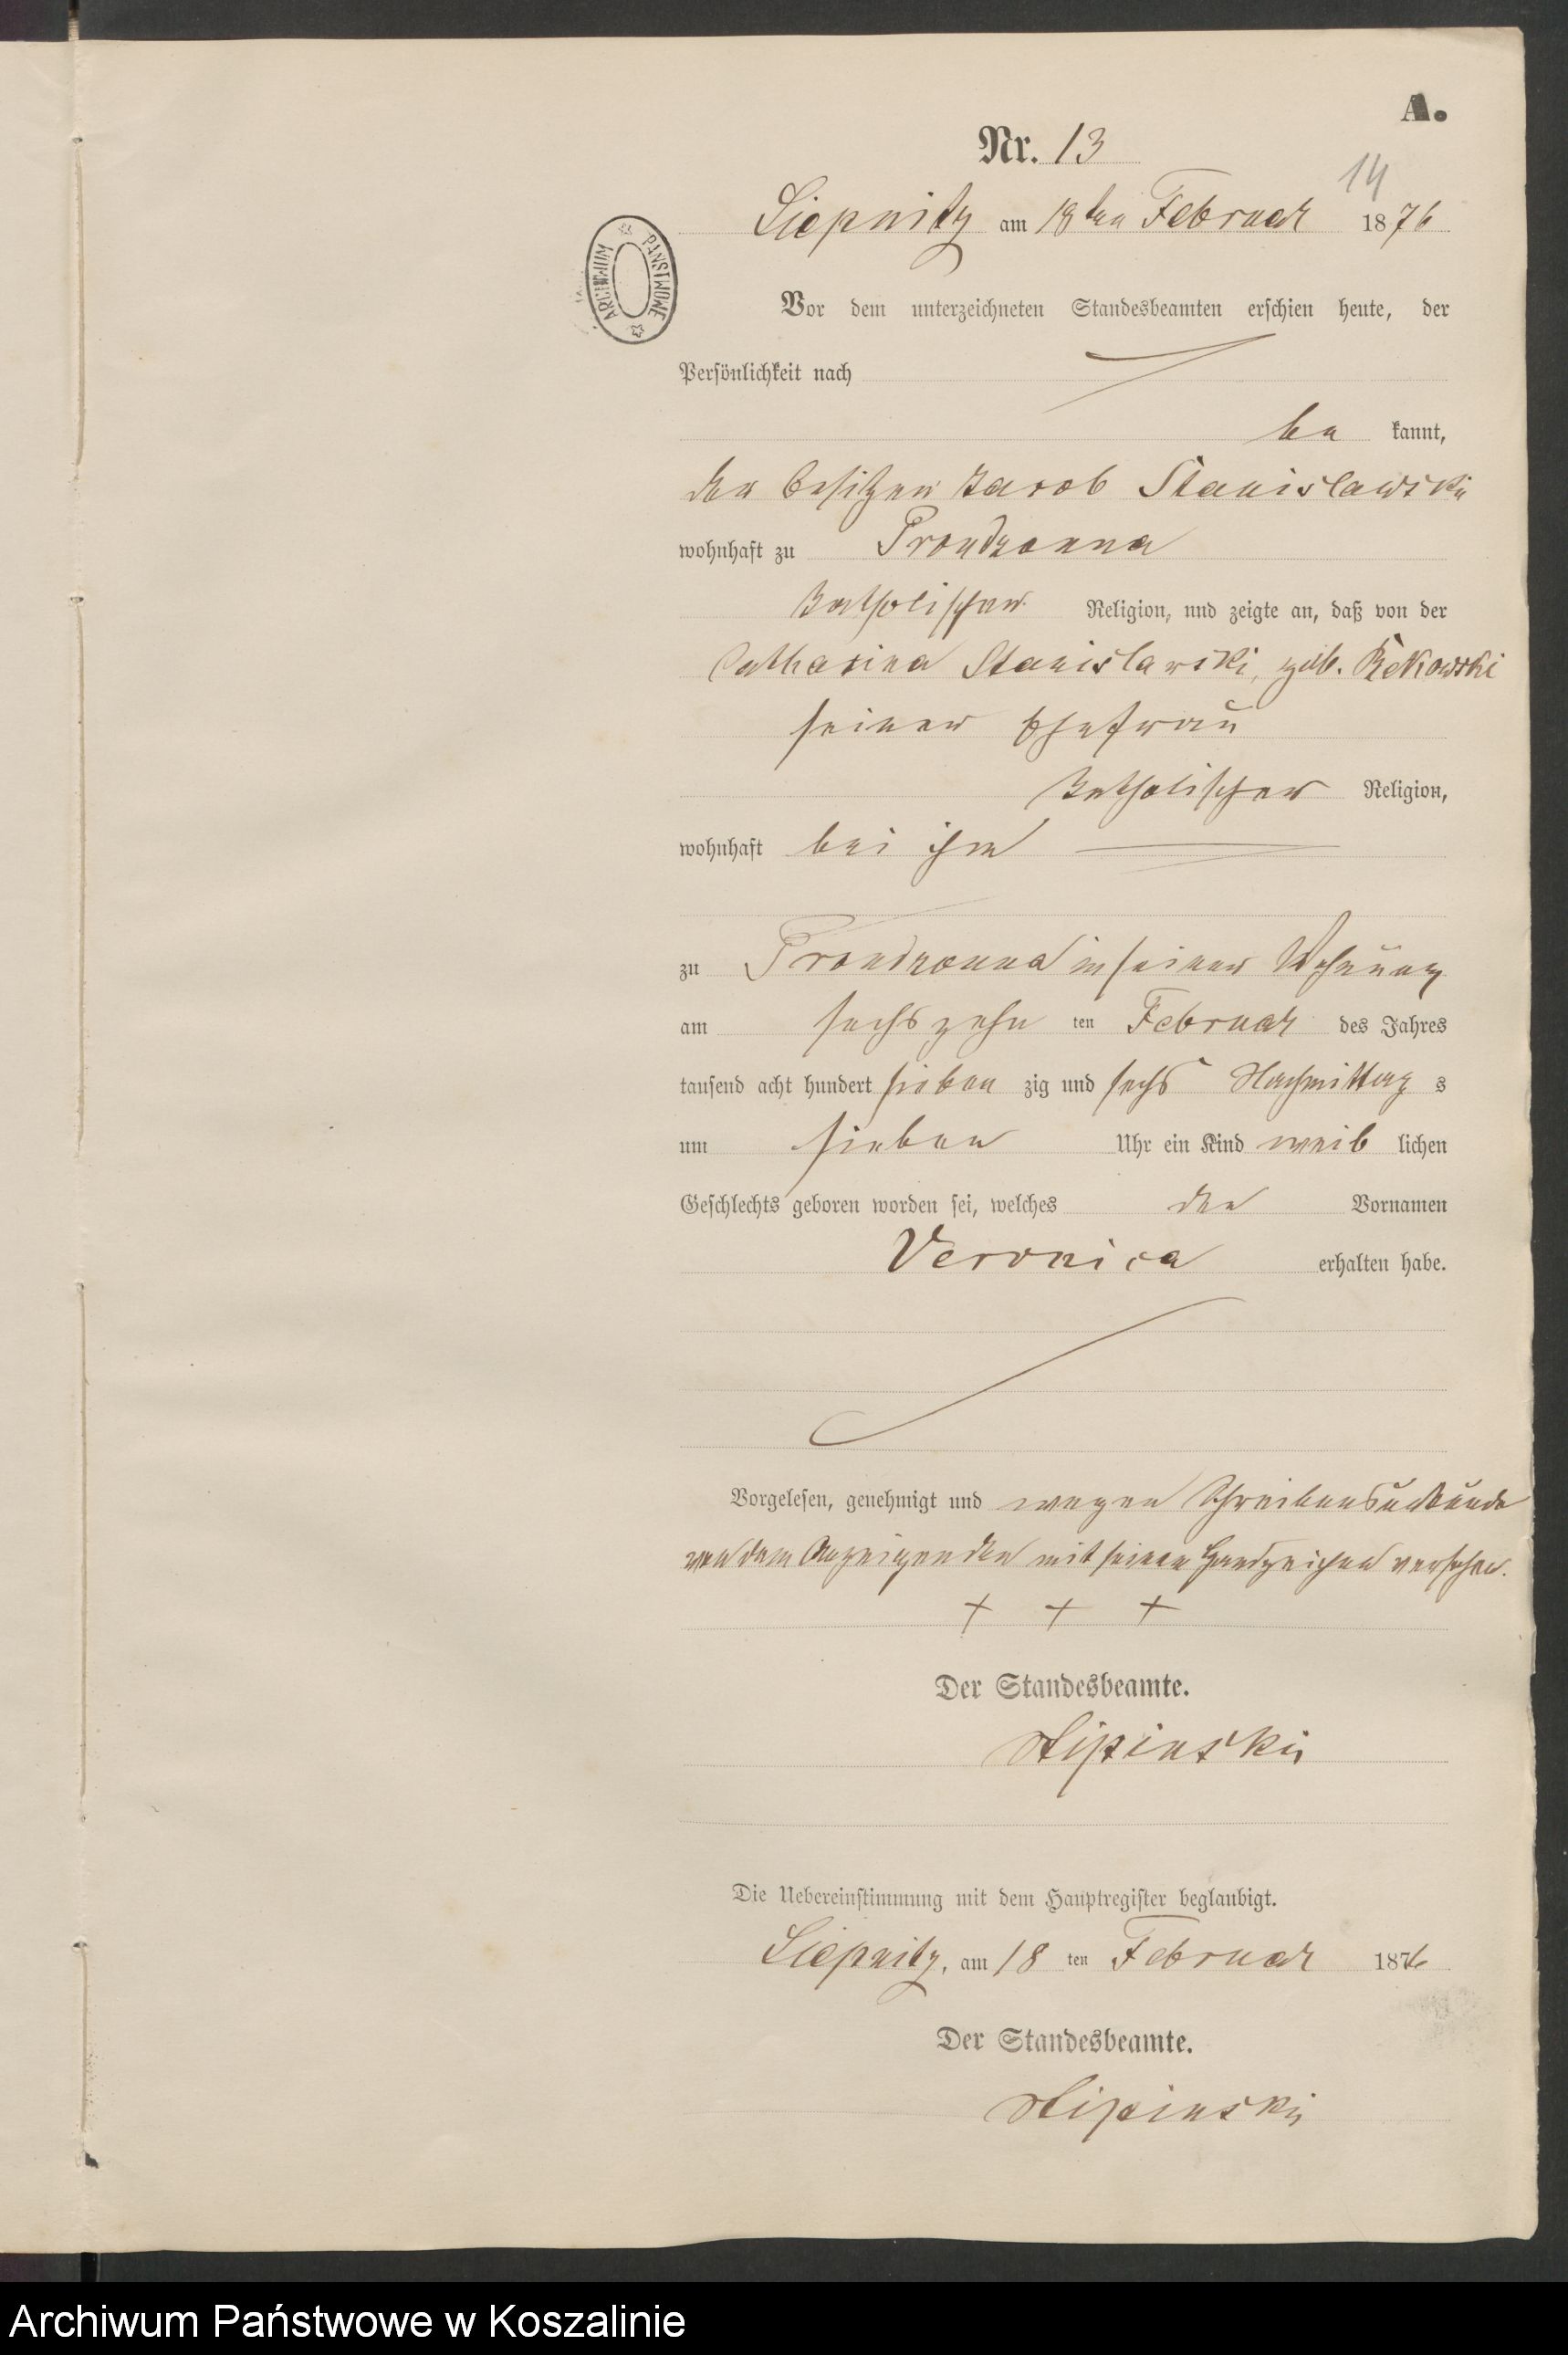 A.
Nr. 13
14
Liepnitz am 18ten Februar 1876
ARCHIWUM PAŃSTWOWE
Vor dem unterzeichneten Standesbeamten erschien heute, der
Persönlichkeit nach
be kannt,
der Besitzer Jacob Stanislawski
wohnhaft zu Prondzonna
katholischer Religion, und zeigte an, daß von der
Catharina Stanislawski, geb. Rekowski
seiner Ehefrau
katholischer Religion,
wohnhaft bei ihm
zu Prondzonna in seiner Wohnung
am sechszehn ten Februar des Jahres
tausend acht hundert sieben zig und sechs Nachmittag s
um sieben Uhr ein Kind weib lichen
Geschlechts geboren worden sei, welches den Vornamen
Veronica erhalten habe.
Vorgelesen, genehmigt und wegen Schreibensunkunde
von dem Anzeigenden mit seinen Handzeichen versehen.
+ + +
Der Standesbeamte.
Die Uebereinstimmung mit dem Hauptregister beglaubigt.
Liepnitz, am 18 ten Februar 1876
Der Standesbeamte.
Archiwum Państwowe w Koszalinie